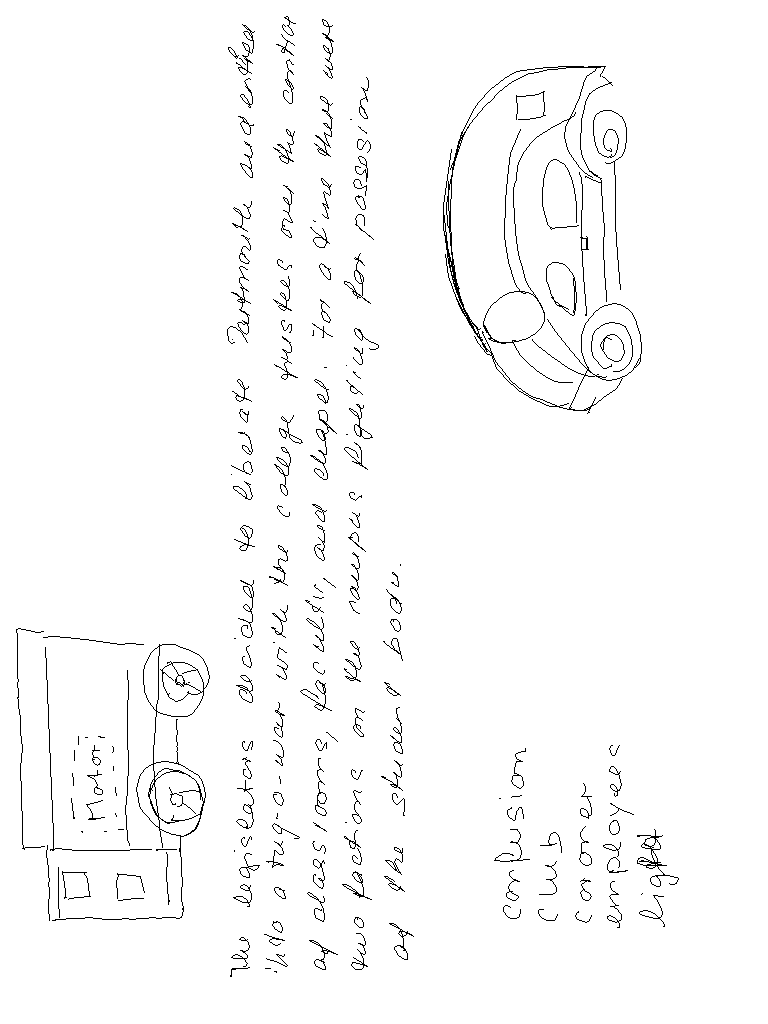 Motor
The legislators decided to liberate Dartmouth and entered
into a tug-o-war with the college trustees over the control
of classrooms, facultiy, and chapel. For a time there were
two factions on the campus fighting for possesion
of the student body.
confusion
Club
coroner
employees
light